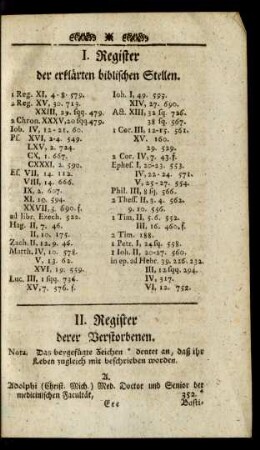 I. Register
der erklärten biblischen Stellen.
1 Reg. XI, 4-8. 579.
2 Reg. XV, 30. 713.
XXIII, 29. sqq. 479.
2 Chron. XXXV, 20 sqq 479.
Iob. IV, 12-21. 60.
Pf. XVI, 2-4. 549.
LXV, 2. 724.
CX, 1. 667.
CXXXI. 2. 590.
Ef. VII, 14. 112.
VIII, 14. 666.
IX, 2. 607.
XI, 10. 594.
XXVII, 5. 690. f.
ad libr. Ezech. 522.
Hag. II, 7. 46.
II, 10. 175.
Zach. II, 12. 9. 46.
Matth. IV, 10. 578.
V. 13. 62.
XVI, 19. 559.
Luc. III, 1 sqq. 736.
XV, 7. 576. f.
Ioh. I, 49. 593.
XIV, 27. 690.
Act. XIII, 32 sq. 726.
38 sq. 567.
1 Cor. III, 12-15. 561.
XV. 160.
29. 529.
2 Cor. IV, 7. 43. f.
Ephes. I, 20-23. 553.
IV, 22-24. 572.
V, 25-27. 554.
Phil. III, 8 sq. 566.
2 Thess. II, 3. 4. 562.
9. 10. 596.
1 Tim. II, 5. 6. 552.
III, 16. 460. f.
2 Tim. 188.
1 Petr. I, 24 sq. 558.
1 Ioh. II, 20-27. 560.
in ep. ad Hebr. 39. 226. 232.
III, 12 sqq. 294.
IV, 317.
VI, 12. 752.
II. Register
derer Verstorbenen.
Nota. Das beygefügte Zeichen * deutet an, daß ihr
Leben zugleich mit beschrieben worden.
A.
Adolphi (Christ. Mich.) Med. Doctor und Senior der
medicinischen Facultät, 352. *
Eee Basti-